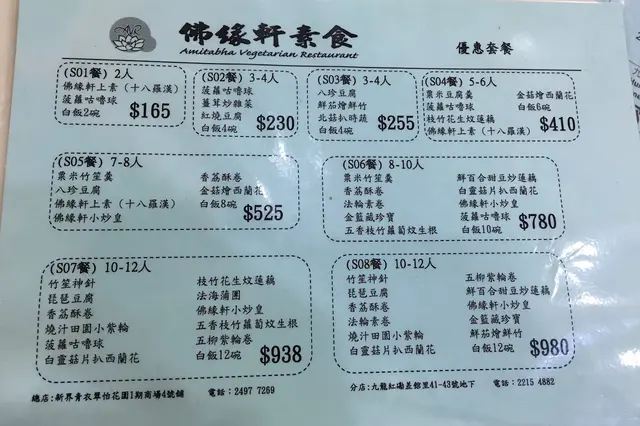 佛緣軒素食
Amitabha Vegetarian Restaurant
優惠套餐
(S01餐) 2人
佛緣軒上素 (十八羅漢)
菠蘿咕嚕球
白飯2碗
$165
(S02餐) 3-4人
菠蘿咕嚕球
薑茸炒雜菜
紅燒豆腐
白飯4碗
$230
(S03餐) 3-4人
八珍豆腐
鮮茄燴鮮竹
北菇扒時蔬
白飯4碗
$255
(S04餐) 5-6人
粟米豆腐羹 金菇燴西蘭花
菠蘿咕嚕球 白飯6碗
枝竹花生炆蓮藕
佛緣軒上素 (十八羅漢)
$410
(S05餐) 7-8人
粟米竹笙羹 香荔酥卷
八珍豆腐 金菇燴西蘭花
佛緣軒上素 (十八羅漢) 白飯8碗
佛緣軒小炒皇
$525
(S06餐) 8-10人
粟米竹笙羹 鮮百合甜豆炒蓮藕
香荔酥卷 白靈菇片扒西蘭花
法輪素卷 佛緣軒小炒皇
金藍藏珍寶 菠蘿咕嚕球
五香枝竹蘿蔔炆生根 白飯10碗
$780
(S07餐) 10-12人
竹笙神針 枝竹花生炆蓮藕
琵琶豆腐 法海蒲團
香荔酥卷 佛緣軒小炒皇
燒汁田園小紫輪 五香枝竹蘿蔔炆生根
菠蘿咕嚕球 五柳紫輪卷
白靈菇片扒西蘭花 白飯12碗
$938
(S08餐) 10-12人
竹笙神針 五柳紫輪卷
琵琶豆腐 鮮百合甜豆炒蓮藕
香荔酥卷 佛緣軒小炒皇
法輪素卷 金藍藏珍寶
燒汁田園小紫輪 鮮茄燴鮮竹
白靈菇片扒西蘭花 白飯12碗
$980
總店：新界青衣翠怡花園1期商場4號舖 電話：2497 7269
分店：九龍紅磡蕪湖里41-43號地下 電話：2215 4882